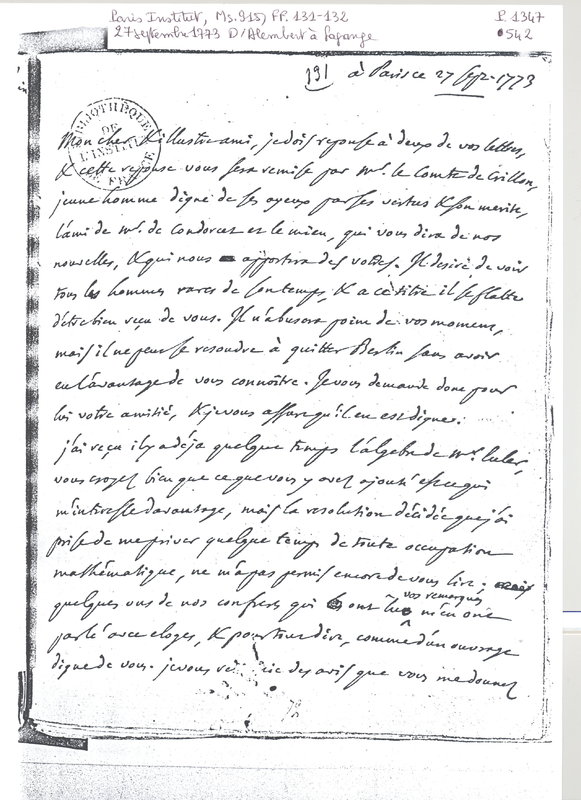 Paris Institut, Ms. 915, FF. 131-132
27 septembre 1773 D'Alembert à Lagrange
P. 1347
542
191
à Paris ce 27 sept. 1773
BIBLIOTHEQUE DE L'INSTITUT FRANCE
Mon cher & illustre ami, je dois reponse à deux de vos lettres,
& cette reponse vous sera remise par Mr. le Comte de Crillon,
jeune homme digne de ses ayeux par ses vertus & son merite,
l'ami de Mr. de Condorcet et le mien, qui vous dira de nos
nouvelles, & qui nous apportera des votres. Il desire de voir
tous les hommes rares de son temps, & a ce titre il se flatte
d'etre bien reçu de vous. Il n'abusera point de vos momens,
mais il ne peut se resoudre à quitter Berlin sans avoir
eu l'avantage de vous connoître. Je vous demande donc pour
lui votre amitié, & je vous assure qu'il en est digne.
j'ai reçu il y a déja quelque temps l'algebre de Mr. Euler,
vous croyez bien que ce que vous y avez ajouté est ce qui
m'interesse davantage, mais la resolution décidée que j'ai
prise de me priver quelque temps de toute occupation
mathématique, ne m'a pas permis encore de vous lire;
quelques uns de nos confreres qui ont lu vos remarques m'en ont
parlé avec eloges, & pour tout dire, comme d'un ouvrage
digne de vous. je vous des avis que vous me donnez